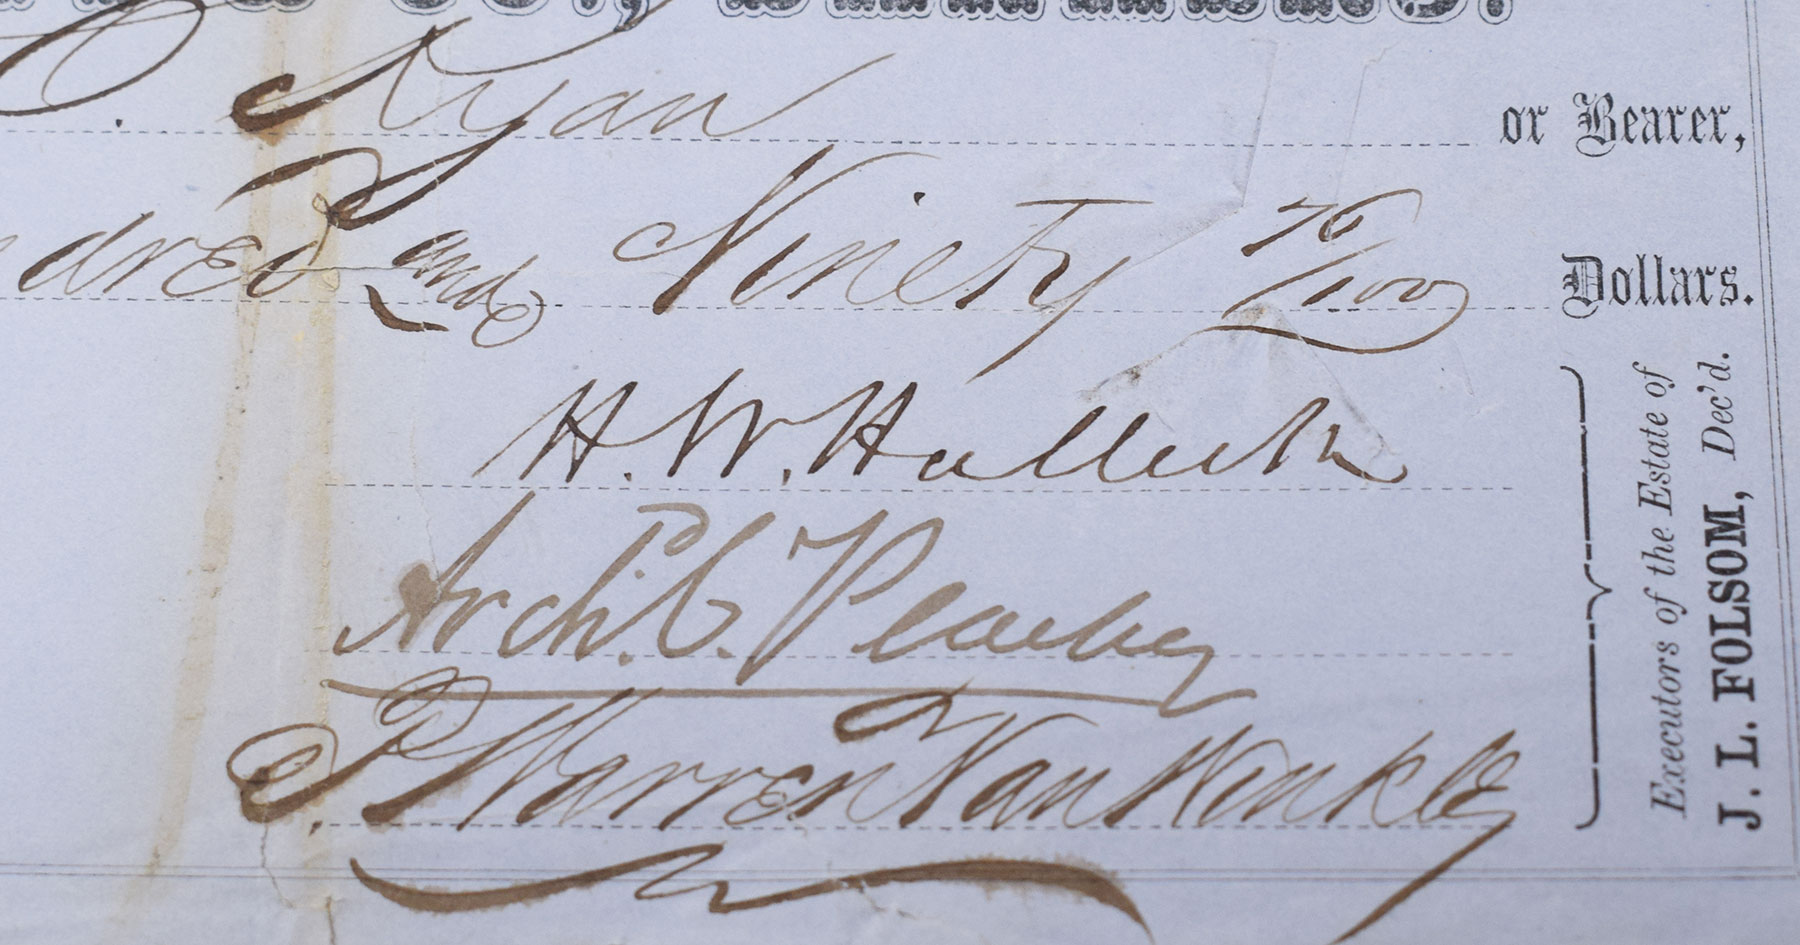 Ryan or Bearer,
dred and Ninety 76/100 Dollars.
H. W. Halleck
Archd. C. Peachy
P. Warren Van Winkle
Executors of the Estate of
J. L. FOLSOM, Dec'd.